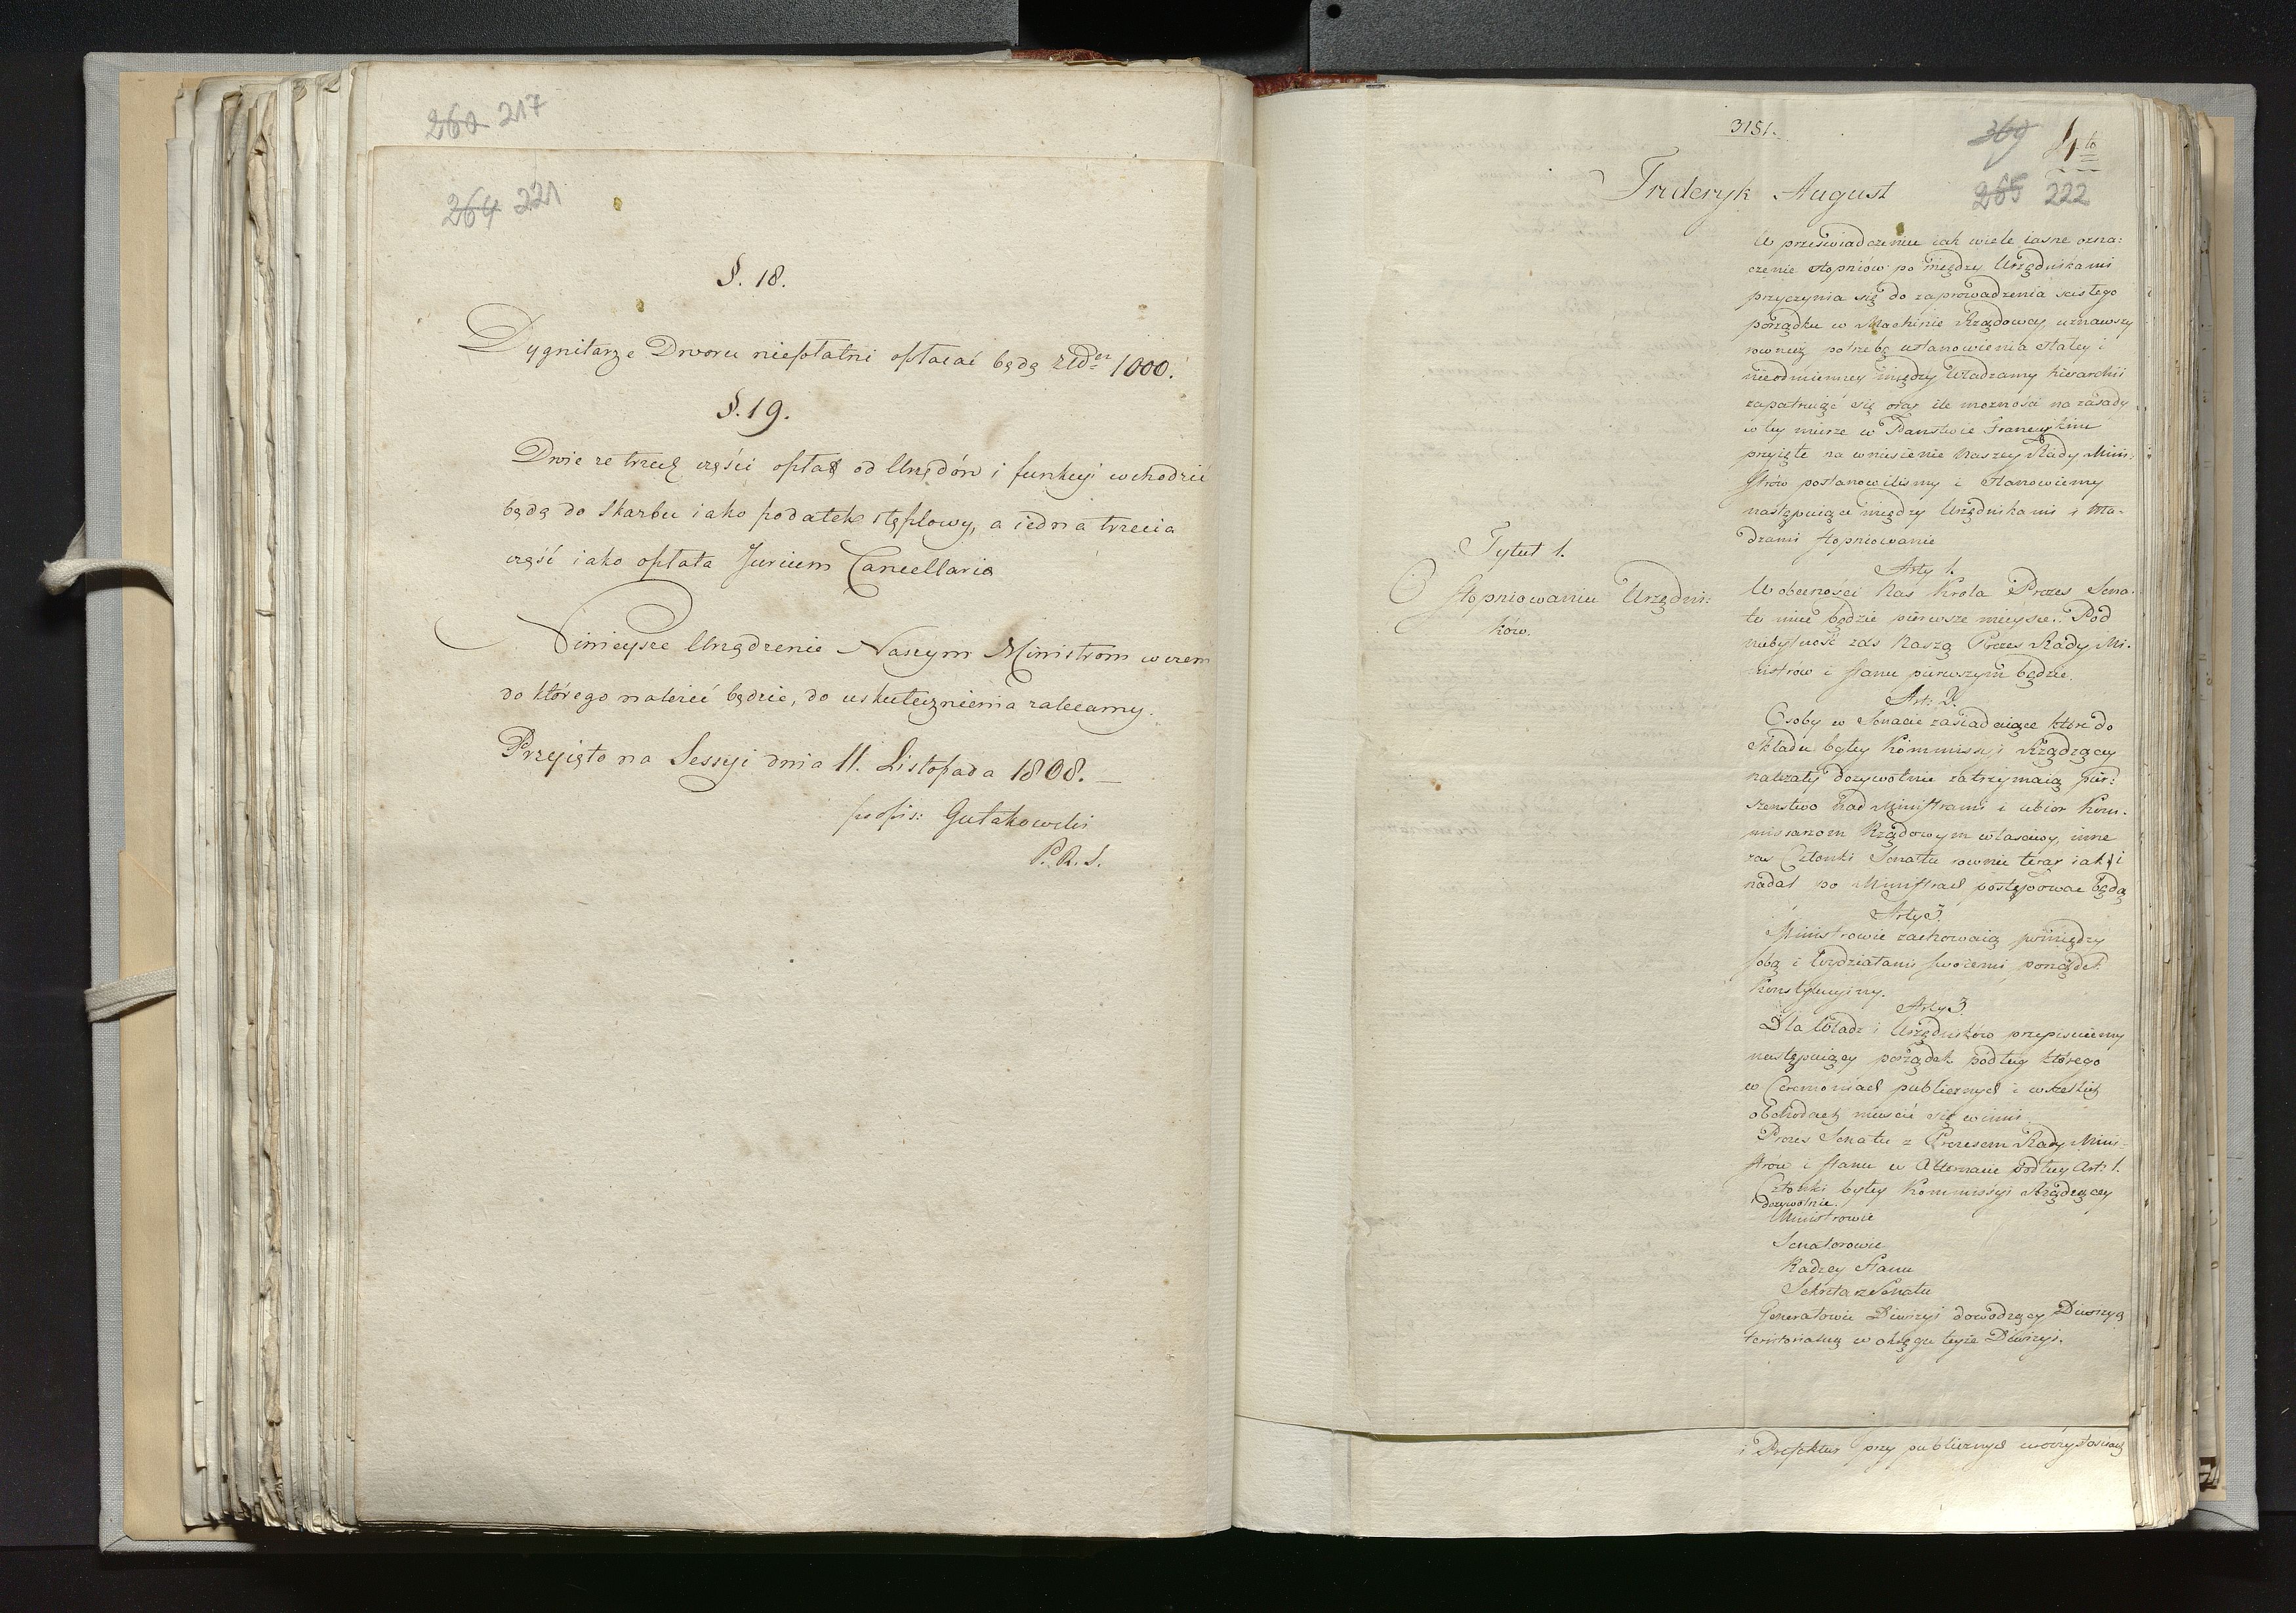 260 217
264 221
§. 18.
Dygnitarze Dworu niepłatni opłacać będą zł. 1000.
§. 19.
Dwie ze trzech części opłat od Urzędów i funkcyi wchodzić
będą do Skarbu iako podatek stęplowy, a iedna trzecia
część iako opłata Jurium Cancellariæ
Ninieysze Urządzenie Naszym Ministrom w czem
do którego należeć będzie, do uskutecznienia zalecamy.
Przyięto na Sessyi dnia 11. Listopada 1808. —
podpis: Gutakowski
P. R. S.
3151.
369
265 222
Fryderyk August
W przeświadczeniu iak wiele iasne ozna:
czenie stopniów po między Urzędnikami
przyczynia się do zaprowadzenia scisłego
porządku w Machinie Rządowey, uznawszy
rownież potrzebę ustanowienia stałey i
nieodmienney między Władzamy hierarchii
zapatruiąc się oraz ile możności na zasady
w tey mierze w Panstwie Francuzkim
przyięte na wniesienie Naszey Rady Mini:
strów postanowiliśmy i stanowiemy
następuiące między Urzędnikami i Wła-
dzami stopniowanie
Tytuł 1.
O stopniowaniu Urzędni:
ków.
Arty 1.
W obecności Nas Krola Prezes Sena-
tu mieć będzie pierwsze mieysce. Pod
niebytność zaś Naszą Prezes Rady Mi-
nistrów i stanu pierwszym będzie.
Art: 2.
Osoby w Senacie zasiadaiące które do
składu byłey Kommissyi Rządzącey
należały dożywotnie zatrzymaią pier:
szenstwo nad Ministrami i ubior Kom-
missarzom Rządowym własciwy, inne
zas Członki Senatu rownie teraz iak i
nadal po Ministrach postępować będą
Arty 3.
Ministrowie zachowaią pomiędzy
sobą i Wydziałami swoiemi porządek
Konstytucyiny.
Arty 3.
Dla Władz i Urzędników przepisuiemy
następuiący porządek podług którego
w Ceremoniach publicznych i wszelkich
obchodach mieścić się winni
Prezes Senatu z Prezesem Rady Mini-
strów i stanu w Alternacie podług Art: 1.
Członki byłey Kommissyi Rządzącey
dożywotnie.
Ministrowie
Senatorowie
Radzcy Stanu
Sekretarz Senatu
Generałowie Diwizyi dowodzący Diwizyą
territorialną w okręgu teyże Diwizyi.
i Prefektur przy publicznych uroczystosciach